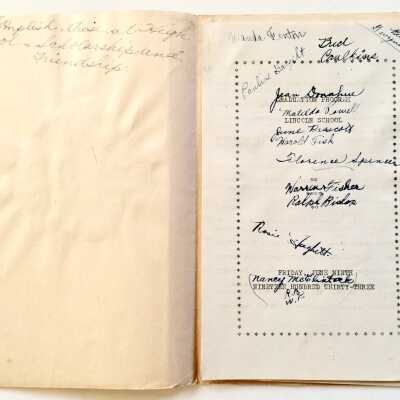 Scholarship and
Friendship.
Wanda Fenton
Fred
Caulkins
Pauline Haight
Jean Donahue
GRADUATION PROGRAM
Matilda Powell
LINCOLN SCHOOL
June Prescott
Harold Fish
Florence Spencer
Warren Fisher
Ralph Bishop
Rosie Hughett
FRIDAY, JUNE NINTH
(Nancy McClintock)
NINETEEN HUNDRED THIRTY-THREE